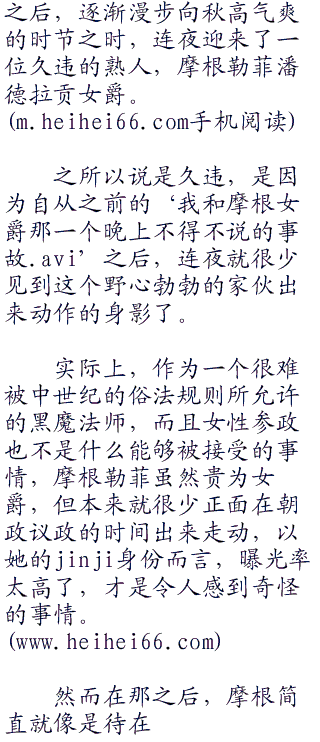 之后，逐渐漫步向秋高气爽
的时节之时，连夜迎来了一
位久违的熟人，摩根勒菲潘
德拉贡女爵。
(m.heihei66.com手机阅读)
之所以说是久违，是因
为自从之前的‘我和摩根女
爵那一个晚上不得不说的事
故.avi’之后，连夜就很少
见到这个野心勃勃的家伙出
来动作的身影了。
实际上，作为一个很难
被中世纪的俗法规则所允许
的黑魔法师，而且女性参政
也不是什么能够被接受的事
情，摩根勒菲虽然贵为女
爵，但本来就很少正面在朝
政议政的时间出来走动，以
她的jinji身份而言，曝光率
太高了，才是令人感到奇怪
的事情。
(www.heihei66.com)
然而在那之后，摩根简
直就像是待在